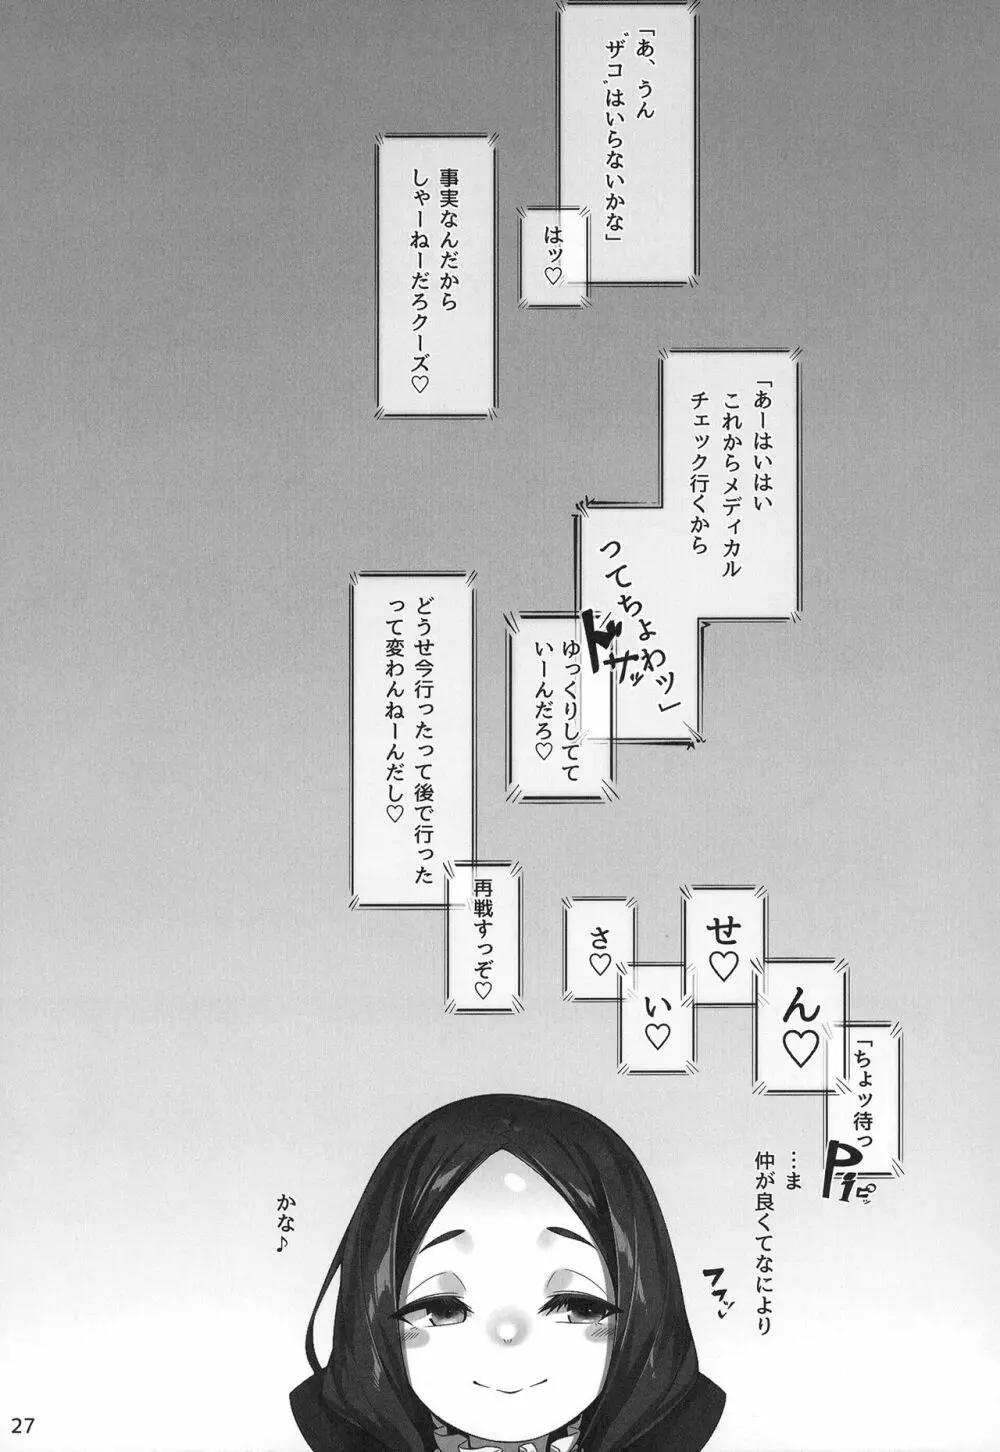 「あ、うん
“ザコ”はいらないかな」
はッ♡
事実なんだから
しゃーねーだろクーズ♡
「あーはいはい
これからメディカル
チェック行くから
ってちょわッ」
ドサッ
ゆっくりしてて
いーんだろ♡
どうせ今行ったって後で行った
って変わんねーんだし♡
再戦すっぞ♡
さ♡
い♡
せ♡
ん♡
「ちょッ待っ
Piピッ
…ま
仲が良くてなにより
フフッ
かな♪
27